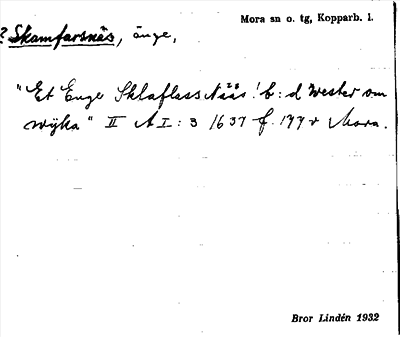 Mora sn o. tg, Kopparb. l.
? Skamfarsnäs, änge,
"Et Enge Sklaflass Nääs! b: d Wester om
wijka" II A I: 3 1637 f. 177 v Mora.
Bror Lindén 1932